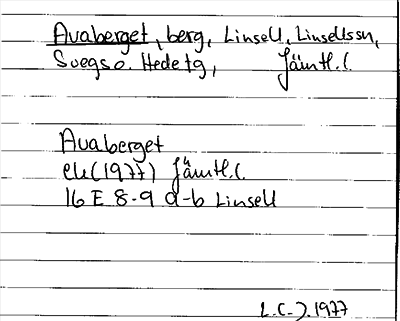 Avaberget, berg, Linsell, Linsellssn,
Svegs o. Hede tg, Jämtl.l.
Avaberget
ek (1977) Jämtl.l.
16 E 8-9 a-b Linsell
L.C.J. 1977